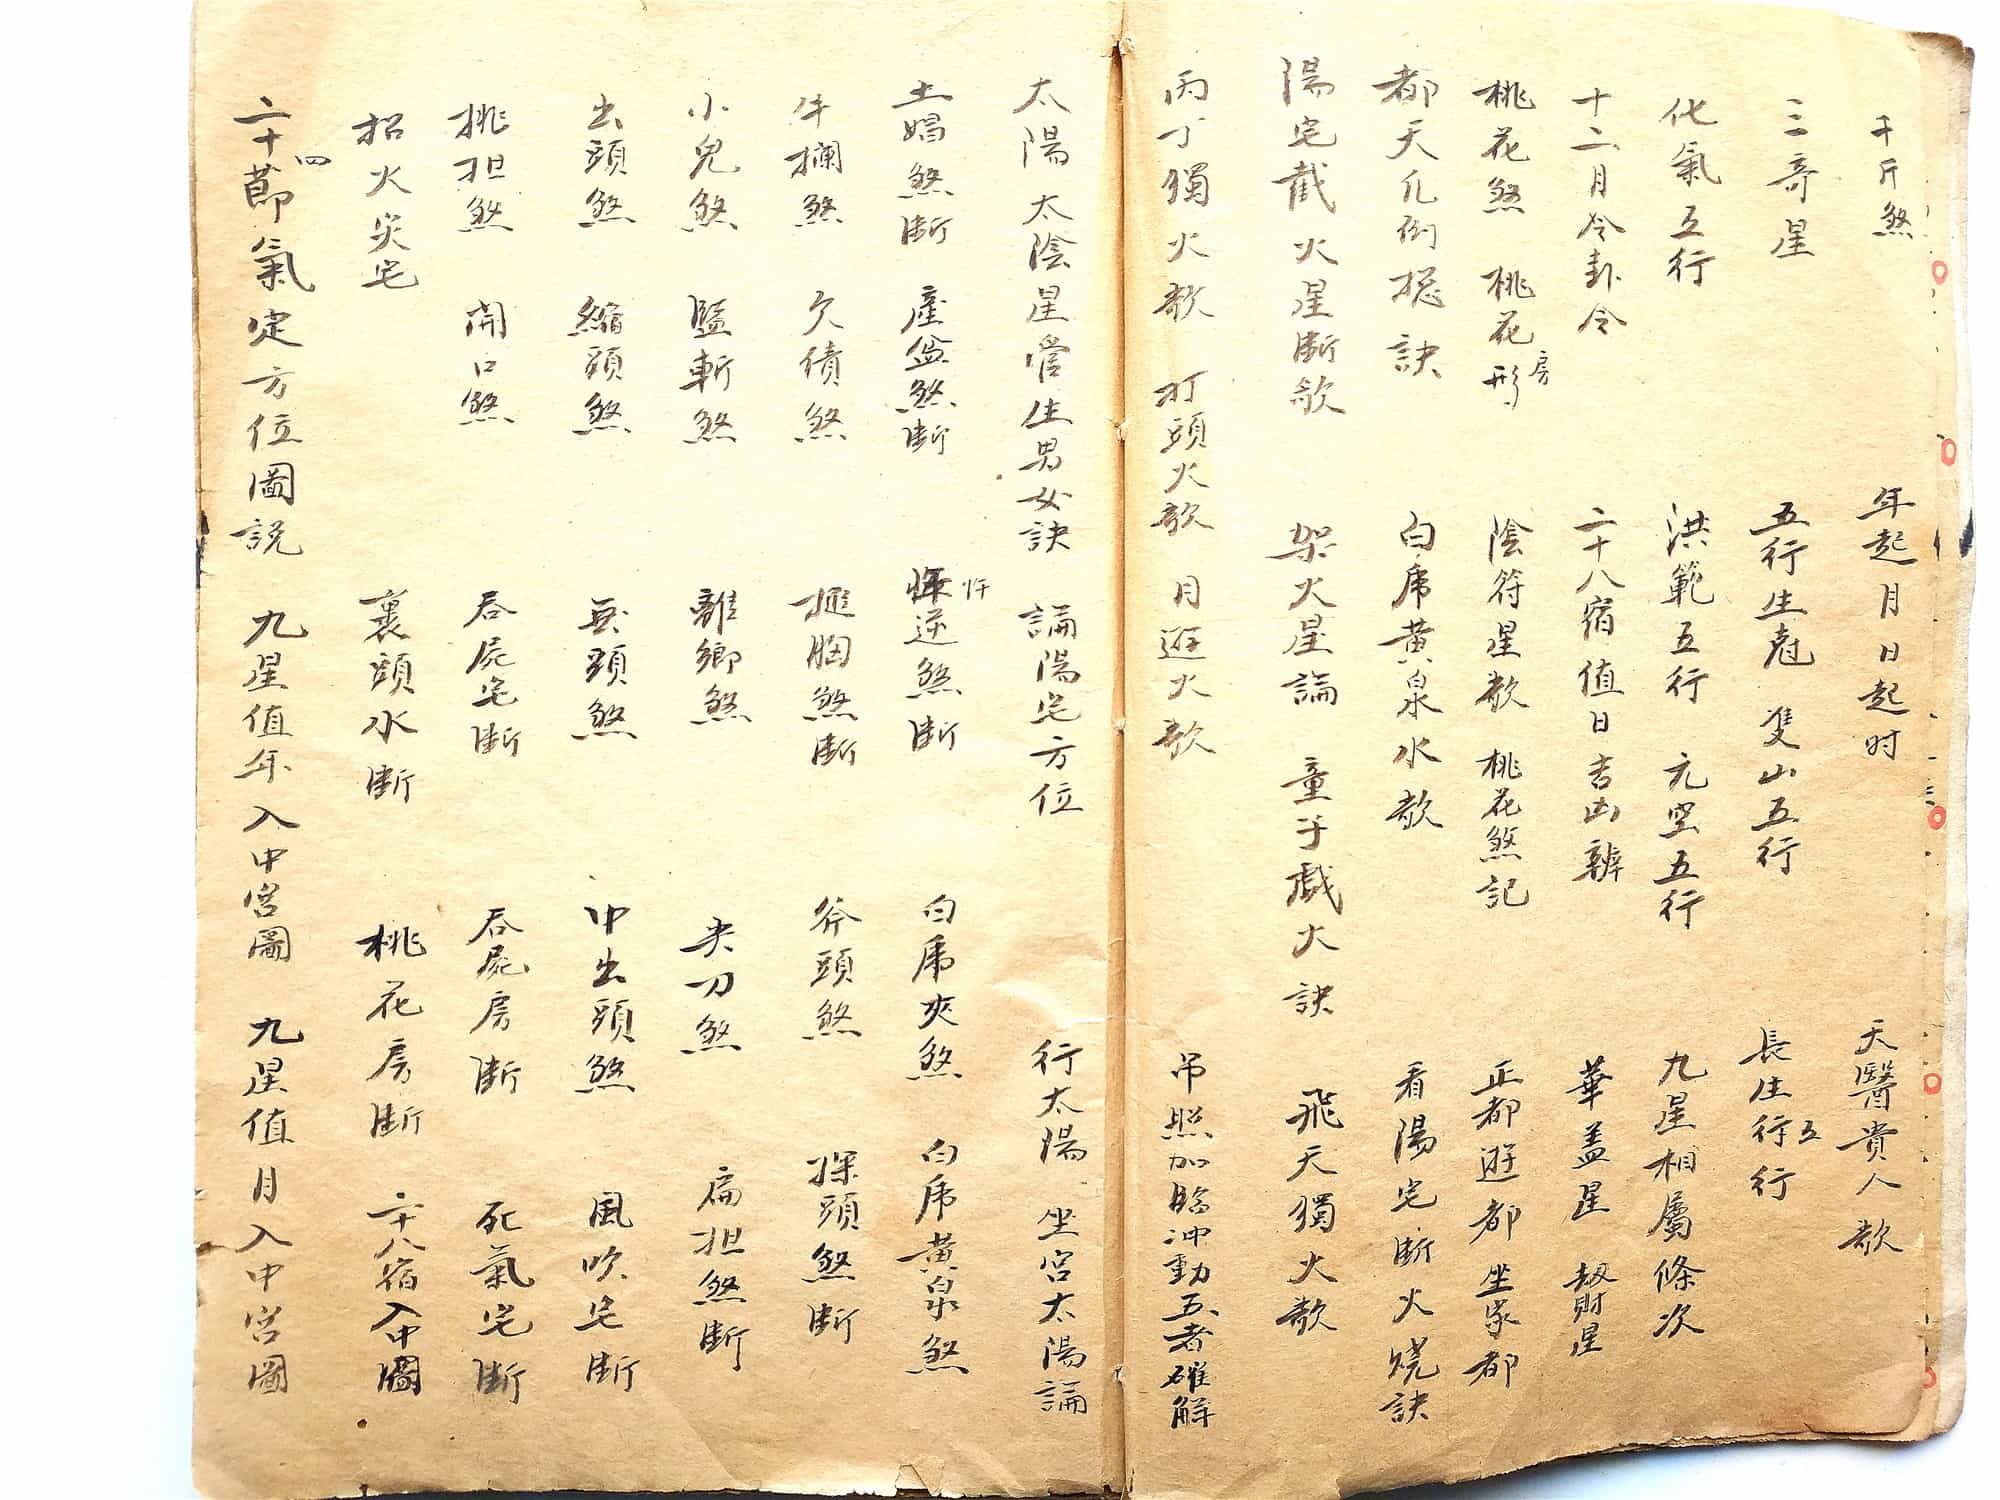 千斤煞 年起月日起时 天醫貴人歌
三奇星 五行生尅 隻山五行 長生五行
化氣五行 洪範五行 元空五行 九星相屬條次
十二月令卦令 二十八宿值日吉凶辨 華盖星 刼財星
桃花煞 桃花房形 陰符星歌 桃花煞記 正都遊都坐家都
都天几例捴訣 白虎黄泉水歌 看陽宅断火燒訣
陽宅截火星断歌 架火星論 童子戲火訣 飛天獨火歌
丙丁獨火歌 打頭火歌 月遊火歌 吊照加臨冲動五者確解
太陽太陰星管生男女訣 論陽宅方位 行太陽 坐宫太陽論
土娼煞断 產盆煞断 忤逆煞断 白虎夾煞 白虎黄泉煞
牛欄煞 欠債煞 搥胸煞断 斧頭煞 探頭煞断
小兒煞 監斬煞 離鄉煞 夹刀煞 扁担煞断
出頭煞 縮頭煞 無頭煞 冲出頭煞 風吹宅断
挑担煞 開口煞 吞屍宅断 吞屍房断 死氣宅断
招火災宅 裹頭水断 桃花房断 二十八宿入中圖
二十四節氣定方位圖説 九星值年入中宫圖 九星值月入中宫圖